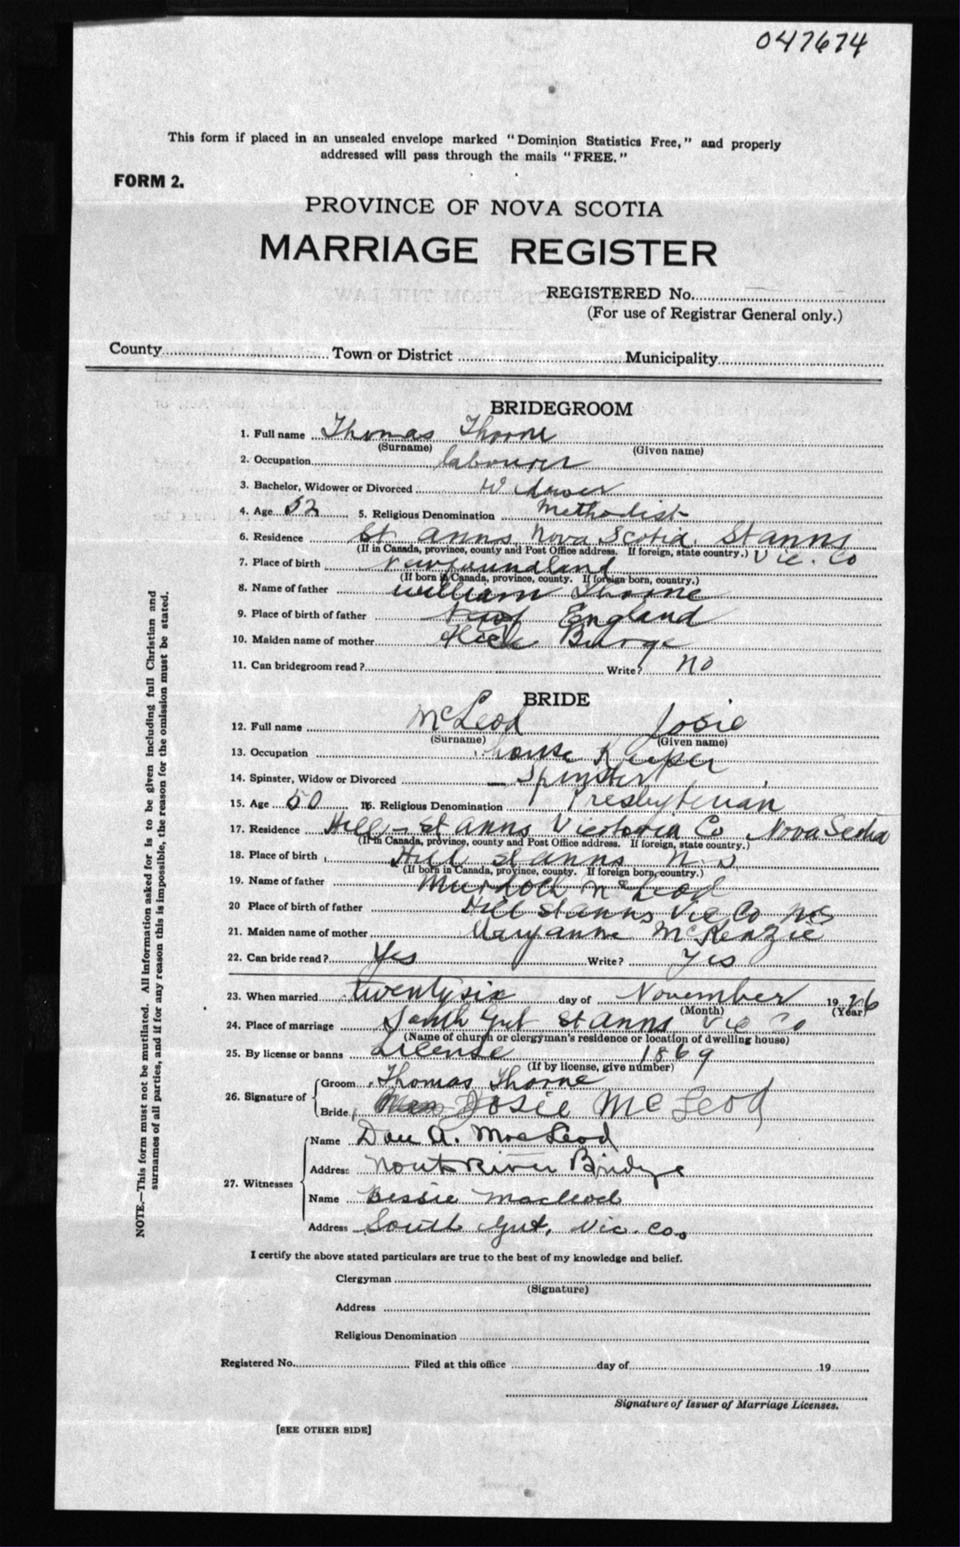 047674
This form if placed in an unsealed envelope marked "Dominion Statistics Free," and properly
addressed will pass through the mails "FREE."
FORM 2.
PROVINCE OF NOVA SCOTIA
MARRIAGE REGISTER
REGISTERED No.
(For use of Registrar General only.)
County Town or District Municipality
BRIDEGROOM
1. Full name Thomas Thorne
(Surname) (Given name)
2. Occupation labourer
3. Bachelor, Widower or Divorced Widower
4. Age 52 5. Religious Denomination Methodist
6. Residence St Anns Nova Scotia St anns
(If in Canada, province, county and Post Office address. If foreign, state country.) Vic. Co
7. Place of birth Newfoundland
(If born in Canada, province, county. If foreign born, country.)
8. Name of father William Thorne
9. Place of birth of father England
10. Maiden name of mother Burge
11. Can bridegroom read? Write? no
BRIDE
12. Full name McLeod Josie
(Surname) (Given name)
13. Occupation house Keeper
14. Spinster, Widow or Divorced Spinster
15. Age 50 16. Religious Denomination Presbyterian
17. Residence Hill St Anns Victoria Co Nova Scotia
(If in Canada, province, county and Post Office address. If foreign, state country.)
18. Place of birth Hill St Anns N. S
(If born in Canada, province, county. If foreign born, country.)
19. Name of father Murdock McLeod
20 Place of birth of father Hill St anns Vic Co NS
21. Maiden name of mother Maryanne McKenzie
22. Can bride read? Yes Write? yes
23. When married twentysix day of November 1926
(Month) (Year)
24. Place of marriage South Gut St Anns Vic Co
(Name of church or clergyman's residence or location of dwelling house)
25. By license or banns License 1869
(If by license, give number)
26. Signature of
Groom Thomas Thorne
Bride Josie McLeod
27. Witnesses
Name Dan A. MacLeod
Address River Bridge
Name Bessie Macleod
Address South Gut, Vic. Co.
I certify the above stated particulars are true to the best of my knowledge and belief.
Clergyman
(Signature)
Address
Religious Denomination
Registered No. Filed at this office day of 19
Signature of Issuer of Marriage Licenses.
[SEE OTHER SIDE]
NOTE.—This form must not be mutilated. All information asked for is to be given including full Christian and
surnames of all parties, and if for any reason this is impossible, the reason for the omission must be stated.